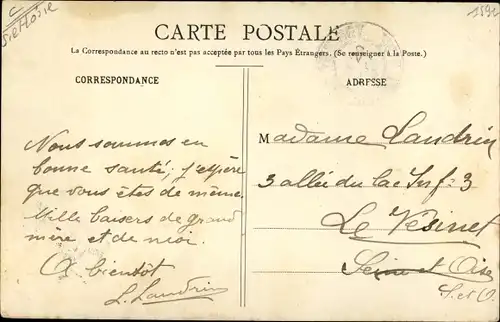 CARTE POSTALE
La Correspondance au recto n'est pas acceptée par tous les Pays Étrangers. (Se renseigner à la Poste.)
CORRESPONDANCE
ADRESSE
Nous sommes en
bonne santé, j'espère
que vous êtes de même.
Mille baisers de grand
mère et de moi.
A bientôt
L. Landrin
Madame Landrin
3 allée du lac Inf: 3
Le Vésinet
Seine et Oise
S. et O.